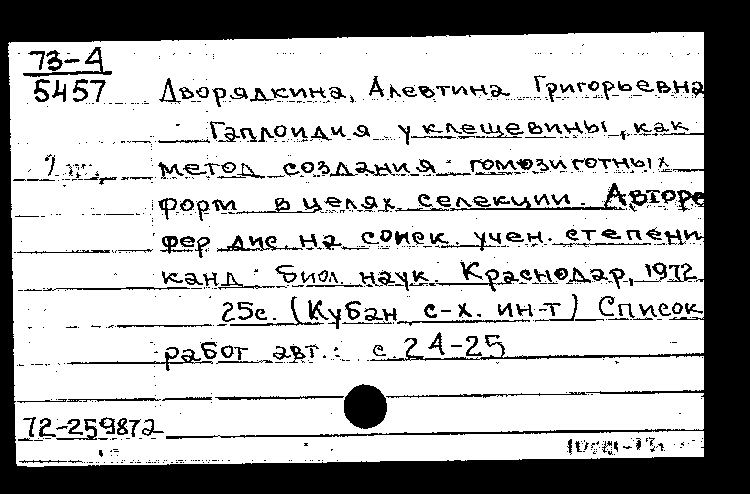 73-4
5457
Дворядкина, Алевтина Григорьевна
Гаплоидия у клещевины, как
метод создания гомозиготных
форм в целях селекции. Авторе
фер дис. на соиск. учен. степени
канд. биол. наук. Краснодар, 1972
25с. (Кубан. с-х. ин-т) Список
работ авт.: с. 24-25
72-259872